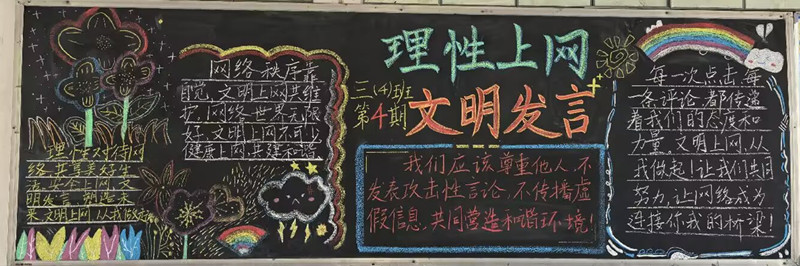 理性上网
文明发言
三(4)班
第4期
理性对待网
络 共享美好生
活 安全上网 文
明发言 创造未
来 文明上网 从我做起
网络秩序靠
自觉,文明上网共维
护,网络世界无限
好,文明上网不可少
健康上网共建和谐
我们应该尊重他人,不
发表攻击性言论,不传播虚
假信息,共同营造和谐环境!
每一次点击每
条评论,都传递
着我们的态度和
力量,文明上网,从
我做起!让我们共同
努力,让网络成为
连接你我的桥梁!